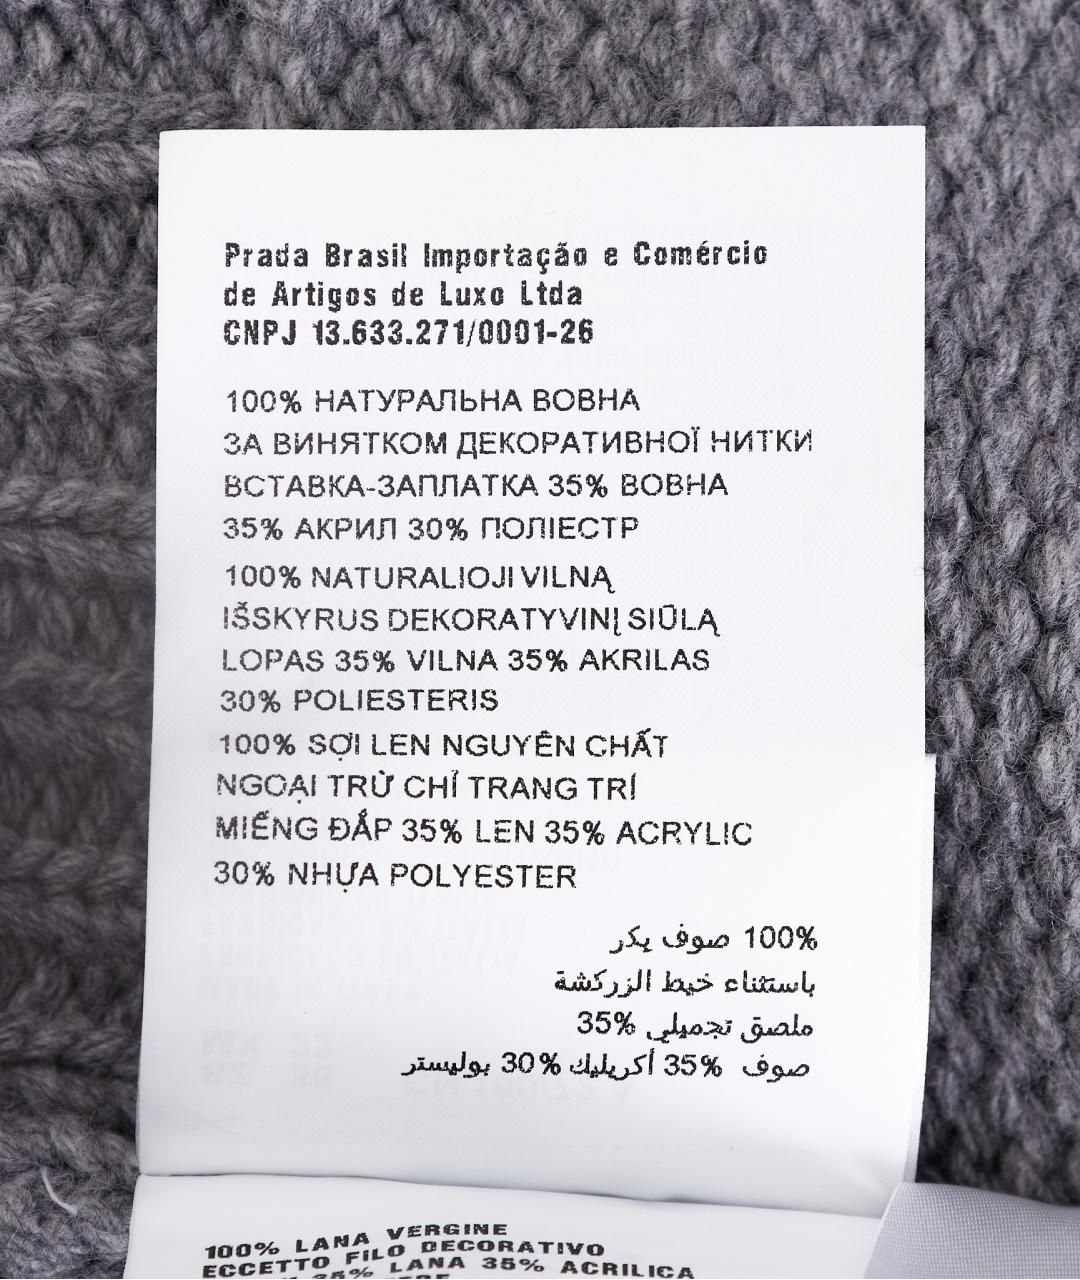 Prada Brasil Importação e Comércio
de Artigos de Luxo Ltda
CNPJ 13.633.271/0001-26
100% НАТУРАЛЬНА ВОВНА
ЗА ВИНЯТКОМ ДЕКОРАТИВНОЇ НИТКИ
ВСТАВКА-ЗАПЛАТКА 35% ВОВНА
35% АКРИЛ 30% ПОЛІЕСТР
100% NATURALIOJI VILNĄ
IŠSKYRUS DEKORATYVINĮ SIŪLĄ
LOPAS 35% VILNA 35% AKRILAS
30% POLIESTERIS
100% SỢI LEN NGUYÊN CHẤT
NGOẠI TRỪ CHỈ TRANG TRÍ
MIẾNG ĐẮP 35% LEN 35% ACRYLIC
30% NHỰA POLYESTER
100% صوف بكر
باستثناء خيط الزركشة
ملصق تجميلي 35%
صوف 35% أكريليك 30% بوليستر
100% LANA VERGINE
ECCETTO FILO DECORATIVO
35% LANA 35% ACRILICA